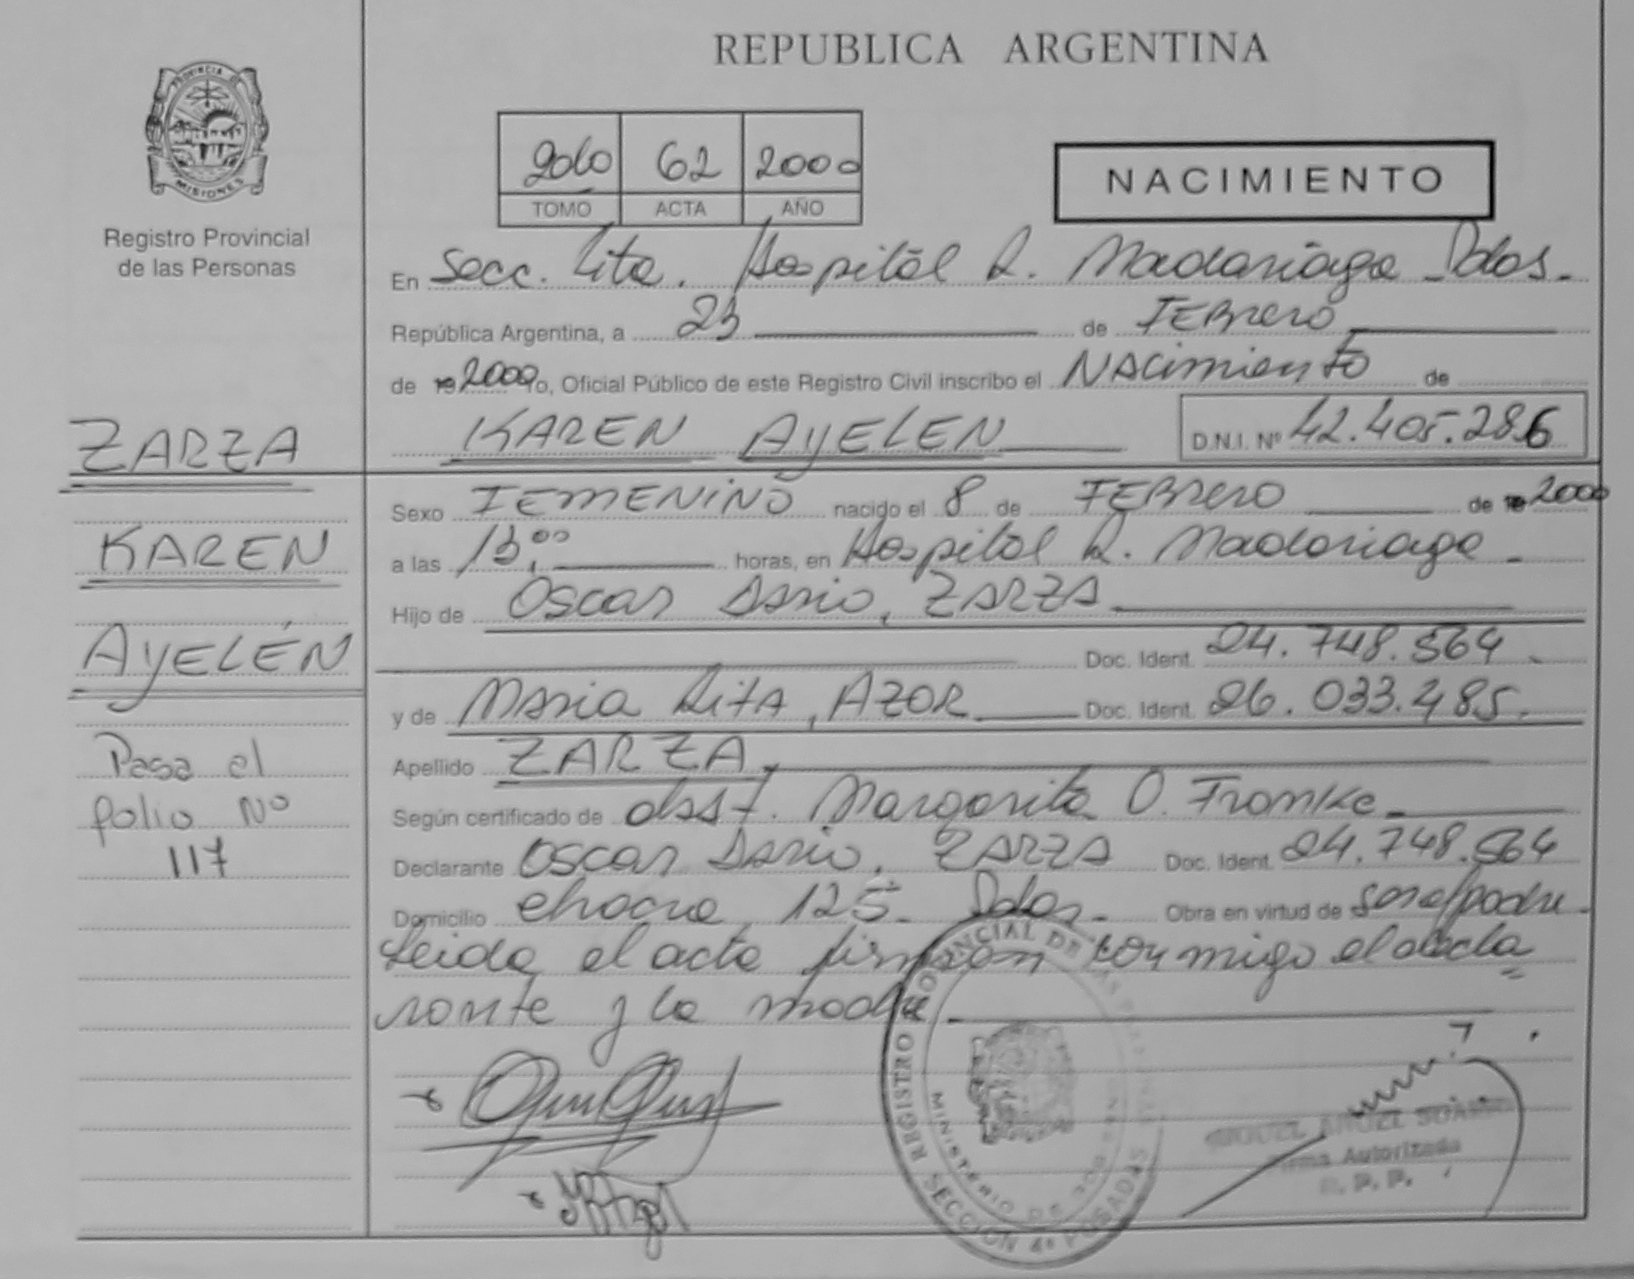 REPUBLICA ARGENTINA
PROVINCIA DE
MISIONES
Registro Provincial
de las Personas
62 2000
TOMO ACTA AÑO
NACIMIENTO
En Secc. 4ta. Hospital R. Madariaga Pdas.
República Argentina, a 23 de FEBrero
de 19 2000, Oficial Público de este Registro Civil inscribo el NAcimiento de
KAREN AyELEN D.N.I. Nº 42.405.286
ZARZA
KAREN
AyELÉN
Pasa al
folio Nº
117
Sexo FEMENINO nacido el 8 de FEBrero de 19 2000
a las 13,00 horas, en Hospital R. Madariaga
Hijo de Oscar Dario, ZARZA
Doc. Ident. 24.748.564
y de Maria Rita, AZOR Doc. Ident. 26.033.485.
Apellido ZARZA,
Según certificado de obst. Margarita O. Fromke
Declarante Oscar Dario, ZARZA Doc. Ident. 24.748.564
Domicilio chacra 125. Pdas. Obra en virtud de ser el padre
Leida el acta firman conmigo el decla
rante y la madre
REGISTRO PROVINCIAL DE LAS PERSONAS
MINISTERIO DE GOBIERNO
SECCION 4ª POSADAS
MIGUEL ANGEL
Firma Autorizada
R. P. P.